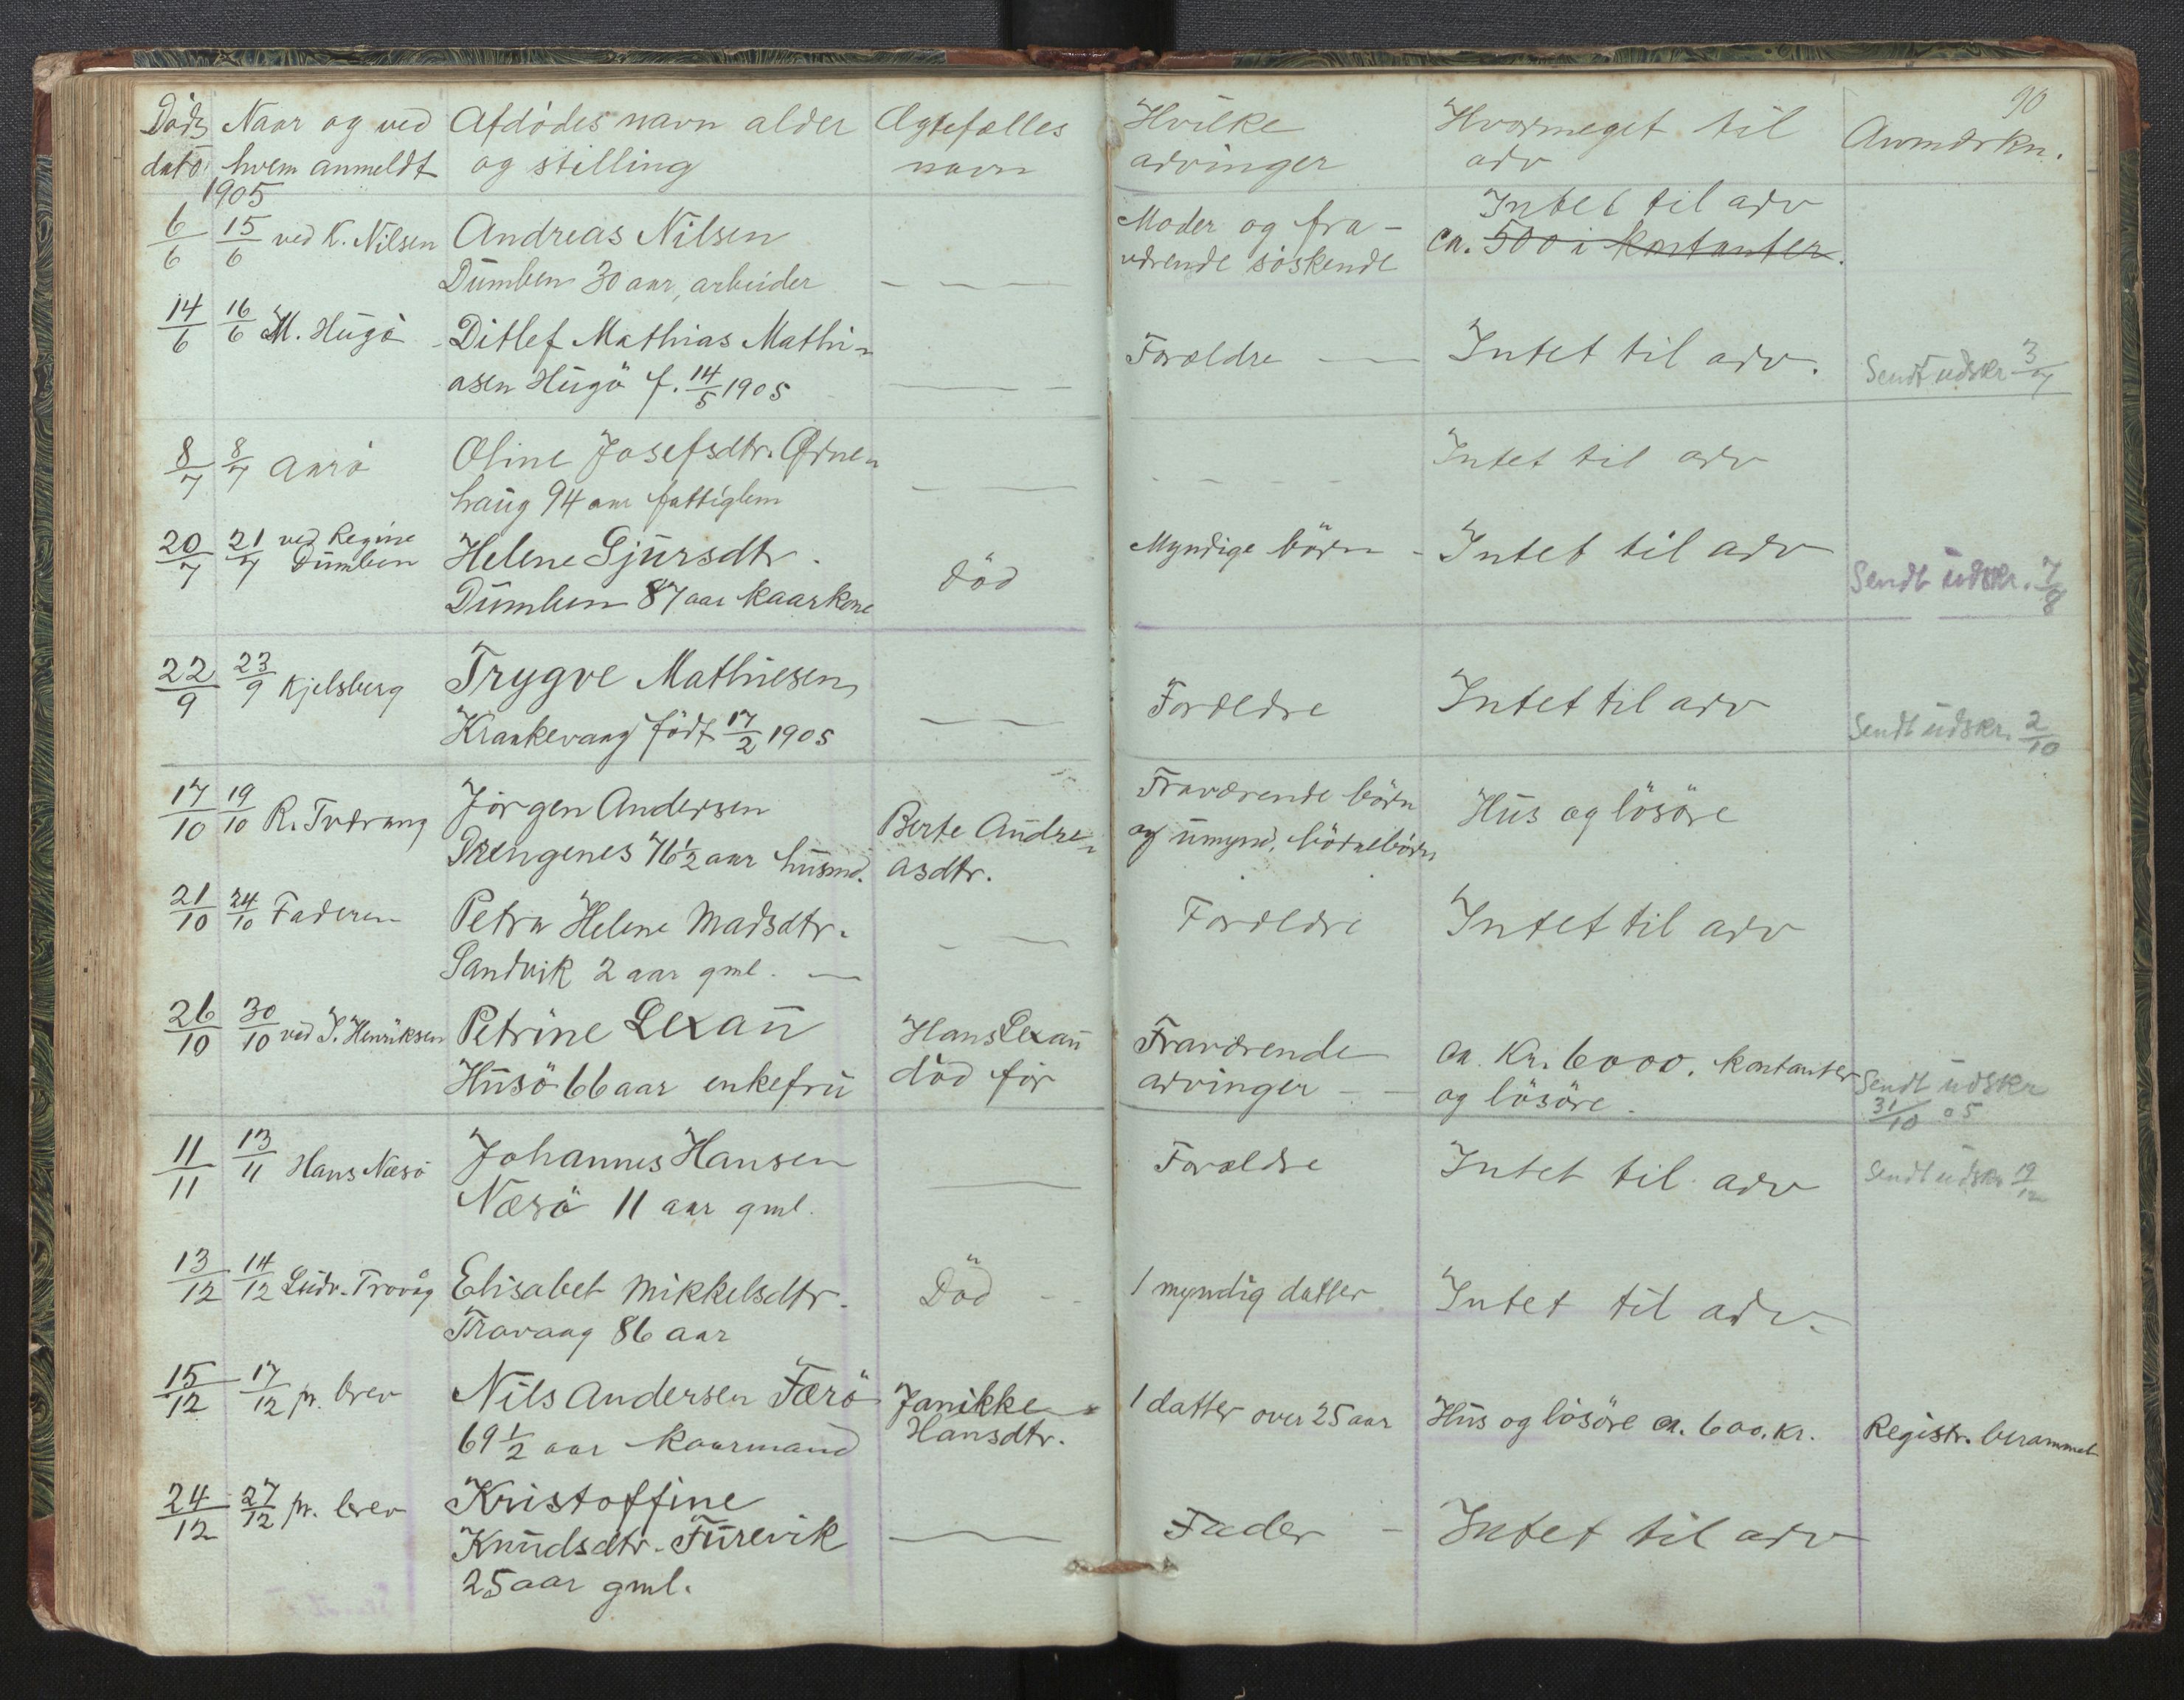 90
Døds Naar og ved Afdødes navn alder Ægtefælles Hvilke Hvormeget til Anmærkn.
dato hvem anmeldt og stilling navn arvinger arv
1905
6/6 15/6 ved K. Nilsen Andreas Nilsen Moder og fra- Intet til arv
Dumben 30 aar, arbeider — — — værende søskende ca. 500 i kontanter.
14/6 16/6 M. Hugø Ditlef Mathias Mathi- Forældre — Intet til arv.
asen Hugø f. 14/5 1905 — — — Sendt udskr 3/7
8/7 8/7 Aarø Oline Josefsdtr. Ødne- Intet til arv
haug 94 aar fattiglem — — - - - -
20/7 21/7 ved Regine Dumben Helene Gjursdtr. Myndige børn - Intet til arv
Dumben 87 aar kaarkone død Sendt udskr. 7/8
22/9 23/9 Kjelsberg Trygve Mathiesen Forældre Intet til arv
Krankevaag født 17/2 1905 — — Sendt udskr. 2/10
17/10 19/10 R. Tværaag Jørgen Andersen Berte Andre- Fraværende børn Hus og løsøre
Rengenes 76 1/2 aar husmd. asdtr. og umynd. børnebørn
21/10 24/10 Faderen Petra Helene Madsdtr. — — Forældre Intet til arv
Sandvik 2 aar gml. —
26/10 30/10 ved I. Henriksen Petrine Lexau Hans Lexau Fraværende ca. Kr. 6000. kontanter
Husø 66 aar enkefru død før arvinger - - og løsøre. Sendt udskr
31/10 05
11/11 13/11 Hans Næsø Johannes Hansen — Forældre Intet til arv Sendt udskr 19/12
Næsø 11 aar gml.
13/12 14/12 Ludv. Trovåg Elisabet Mikkelsdtr. Død - - 1 myndig datter Intet til arv.
Travaag 86 aar
15/12 17/12 pr. brev Nils Andersen Færø Janikke 1 datter over 25 aar Hus og løsøre ca. 600. kr. Registr. berammet
69 1/2 aar kaarmand Hansdtr.
24/12 27/12 pr. brev Kristoffine — Fader - Intet til arv
Knudsdtr. Furevik
25 aar gml.